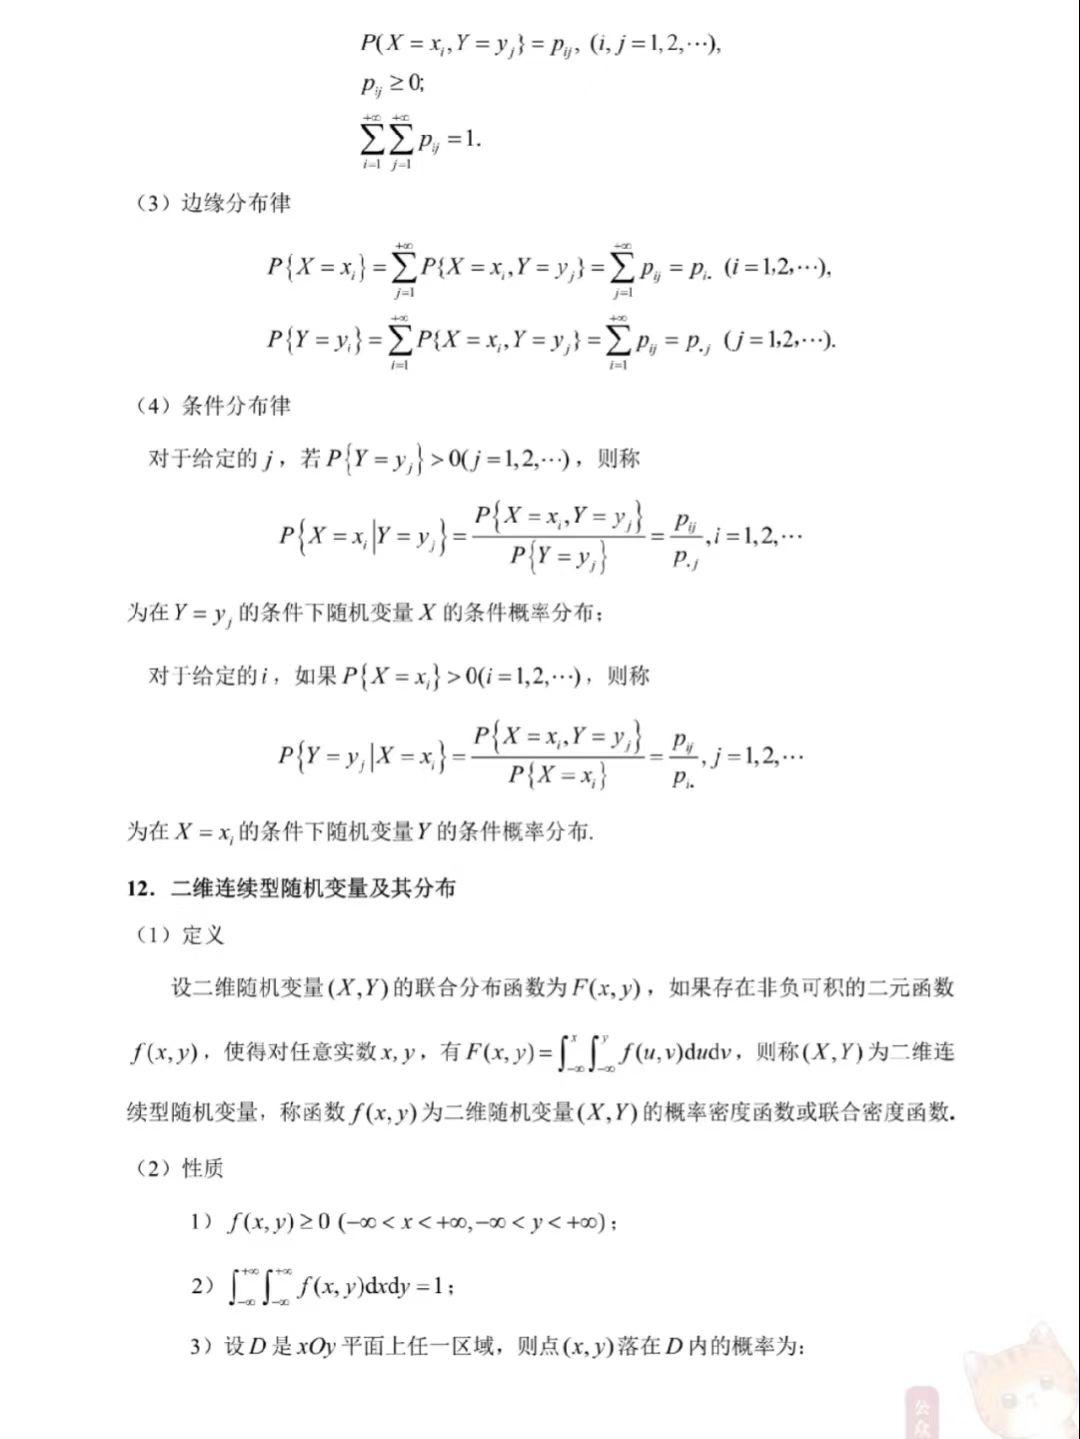 P(X = x_i, Y = y_j} = p_{ij}, (i, j = 1, 2, ⋯),
p_{ij} ≥ 0;
∑_{i=1}^{+∞} ∑_{j=1}^{+∞} p_{ij} = 1.
（3）边缘分布律
P{X = x_i} = ∑_{j=1}^{+∞} P{X = x_i, Y = y_j} = ∑_{j=1}^{+∞} p_{ij} = p_{i.} (i = 1,2,⋯),
P{Y = y_i} = ∑_{i=1}^{+∞} P{X = x_i, Y = y_j} = ∑_{i=1}^{+∞} p_{ij} = p_{.j} (j = 1,2,⋯).
（4）条件分布律
对于给定的 j，若 P{Y = y_j} > 0(j = 1, 2, ⋯)，则称
P{X = x_i | Y = y_j} = P{X = x_i, Y = y_j} / P{Y = y_j} = p_{ij} / p_{.j}, i = 1, 2, ⋯
为在 Y = y_j 的条件下随机变量 X 的条件概率分布；
对于给定的 i，如果 P{X = x_i} > 0(i = 1, 2, ⋯)，则称
P{Y = y_j | X = x_i} = P{X = x_i, Y = y_j} / P{X = x_i} = p_{ij} / p_{i.}, j = 1, 2, ⋯
为在 X = x_i 的条件下随机变量 Y 的条件概率分布.
12．二维连续型随机变量及其分布
（1）定义
设二维随机变量 (X,Y) 的联合分布函数为 F(x, y)，如果存在非负可积的二元函数
f(x, y)，使得对任意实数 x, y，有 F(x, y) = ∫_{-∞}^{x} ∫_{-∞}^{y} f(u, v)dudv，则称 (X,Y) 为二维连
续型随机变量，称函数 f(x, y) 为二维随机变量 (X,Y) 的概率密度函数或联合密度函数.
（2）性质
1） f(x, y) ≥ 0 (−∞ < x < +∞, −∞ < y < +∞)；
2） ∫_{-∞}^{+∞} ∫_{-∞}^{+∞} f(x, y)dxdy = 1；
3）设 D 是 xOy 平面上任一区域，则点 (x, y) 落在 D 内的概率为：
公众